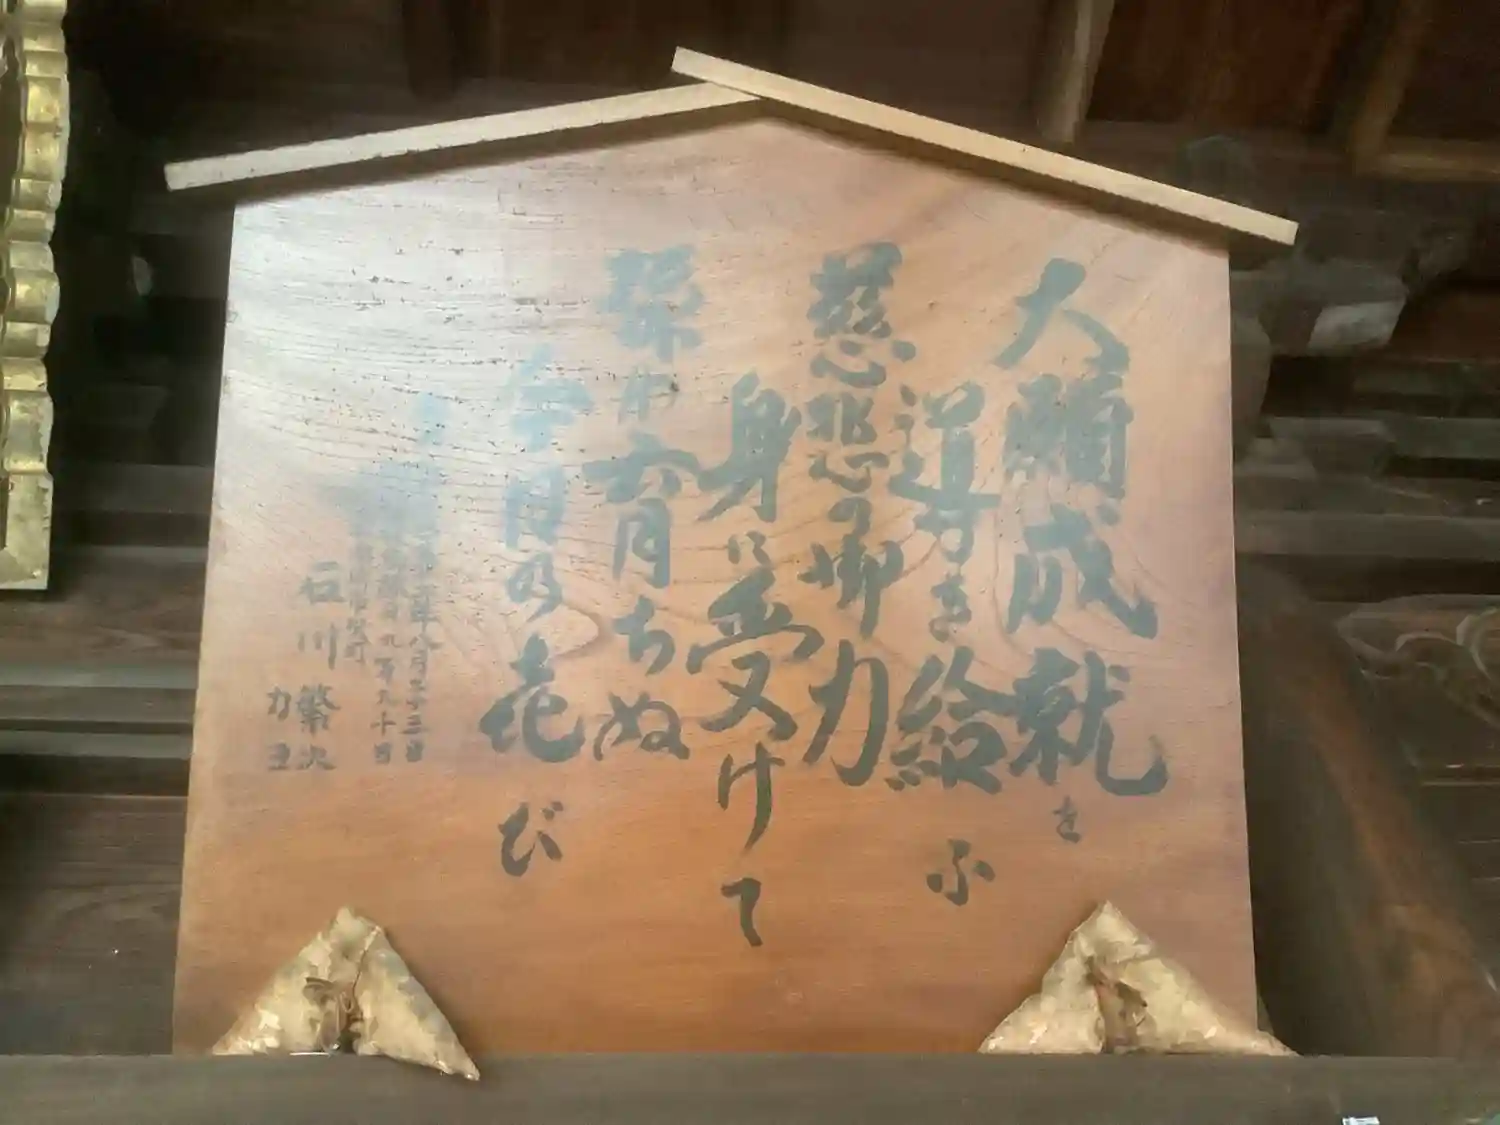 大願成就を
導き給ふ
慈悲の御力
身に受けて
孫は育ちぬ
今日の花
び
年八月二十三日
九百九十日
石川繁次
力ヨ